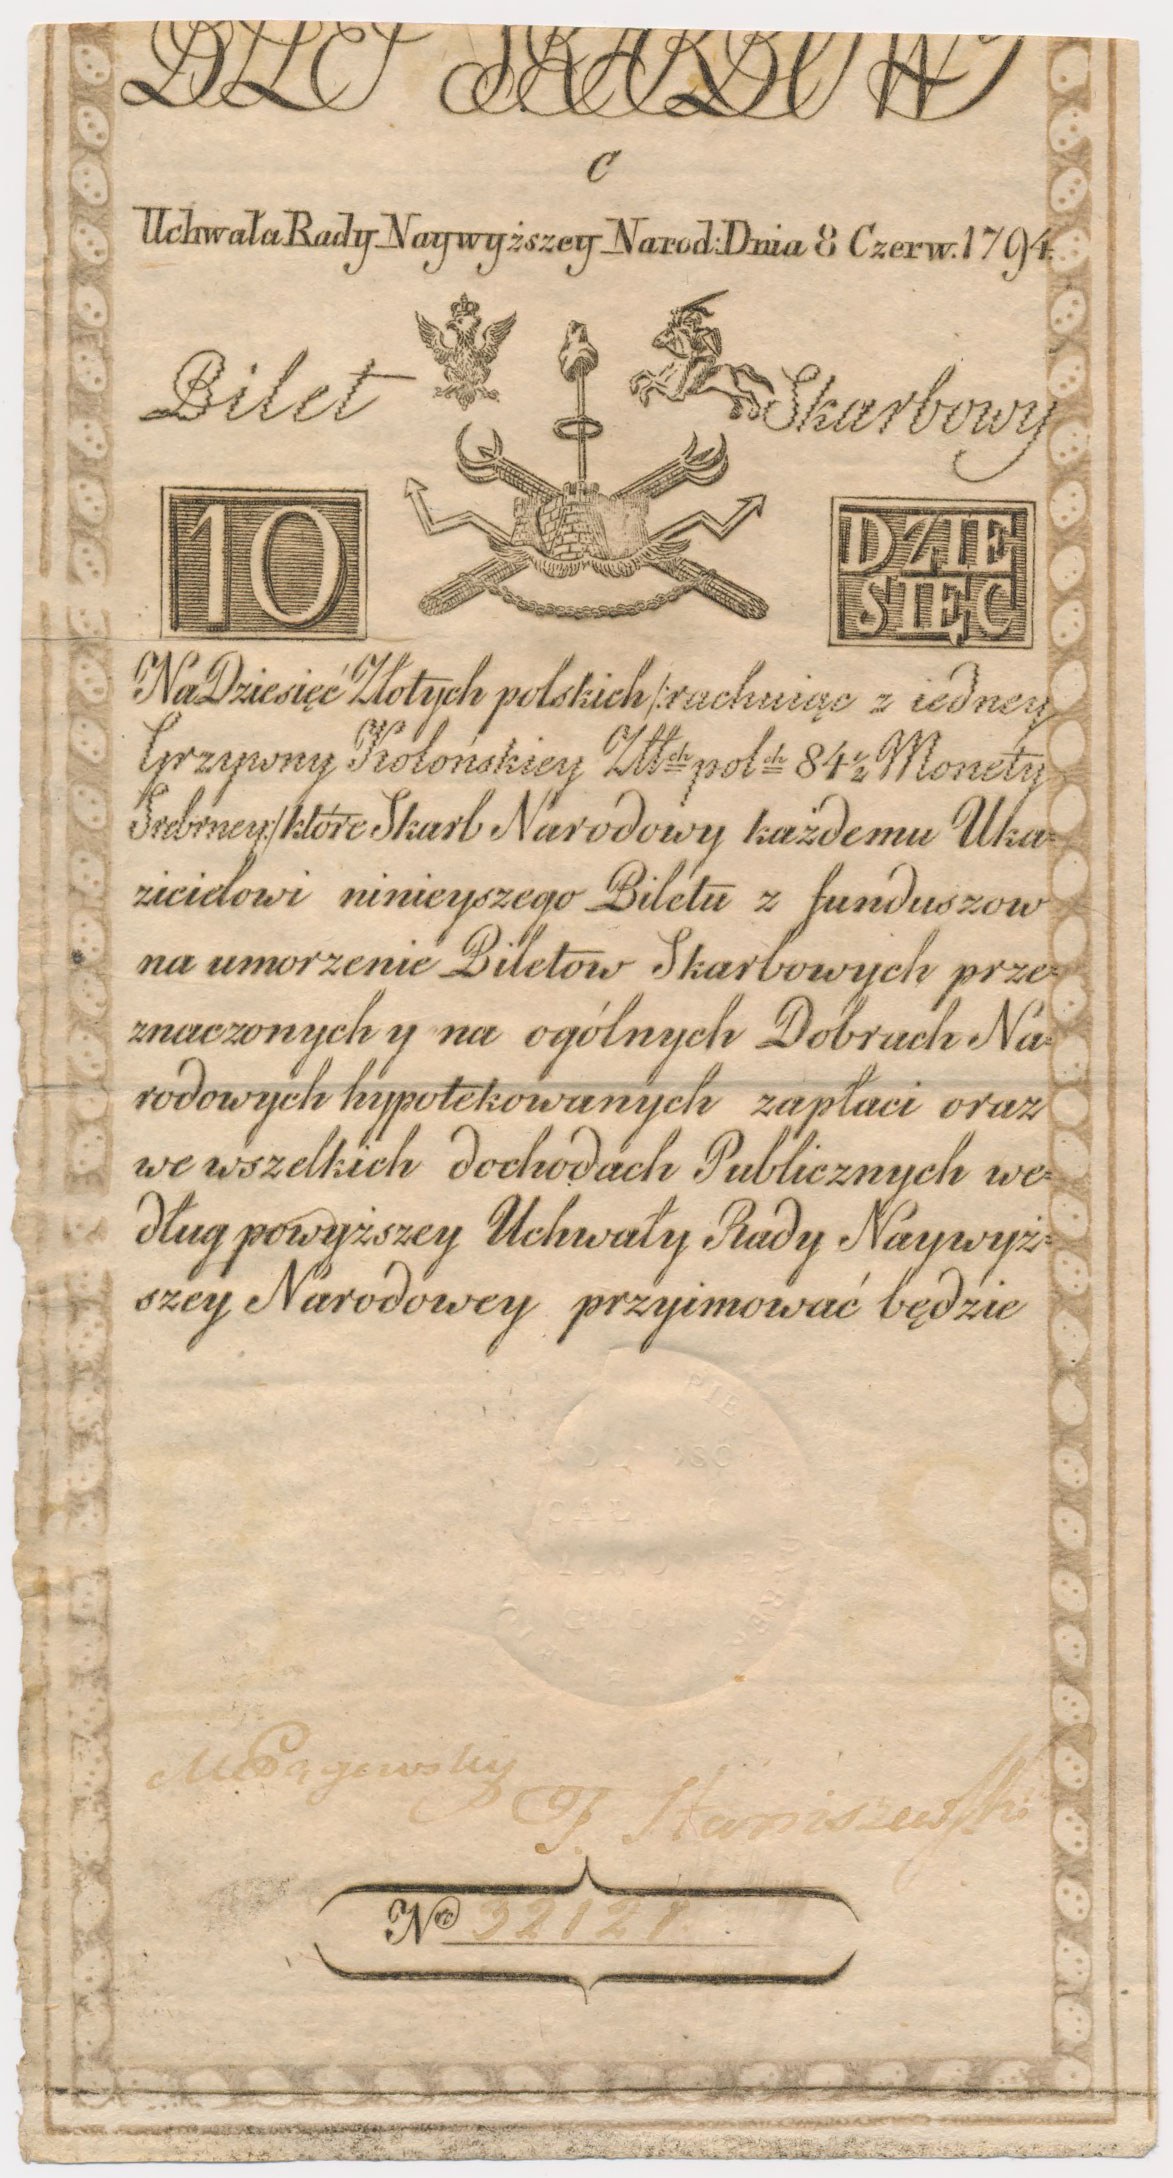 BILET SKARBOWY
C
Uchwała Rady Naywyższey Narod: Dnia 8 Czerw. 1794.
Bilet Skarbowy
10 DZIE
SIĘC
Na Dziesięć Złotych polskich /:rachuiąc z iedney
Grzywny Kolońskiey Złł:ch pol:ch 84½ Monety
Srebrney:/ które Skarb Narodowy każdemu Uka=
zicielowi ninieyszego Biletu z funduszow
na umorzenie Biletow Skarbowych prze=
znaczonych y na ogólnych Dobrach Na=
rodowych hypotekowanych zapłaci oraz
we wszelkich dochodach Publicznych we=
dług powyższey Uchwały Rady Naywyż=
szey Narodowey przyimować będzie
T. Staniszewski
Nro 32121